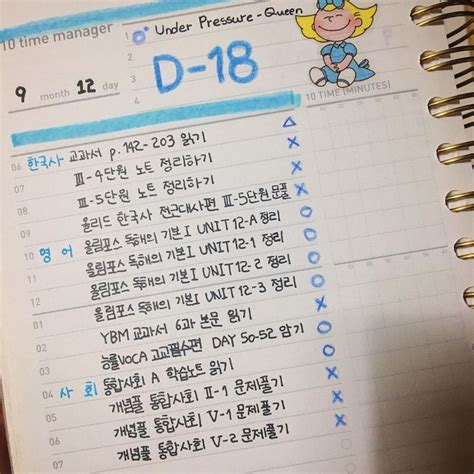 10 time manager
Under Pressure - Queen
9 month 12 day
D-18
10 TIME (MINUTES)
06 한국사 교과서 p.142-203 읽기 △
07 Ⅲ-4단원 노트 정리하기 X
Ⅲ-5단원 노트 정리하기 X
올리드 한국사 전근대사편 Ⅲ-5단원 문풀 X
10 영어 올림포스 독해의 기본Ⅰ UNIT 12-A 정리 O
올림포스 독해의 기본Ⅰ UNIT 12-1 정리 O
올림포스 독해의 기본Ⅰ UNIT 12-2 정리 O
올림포스 독해의 기본Ⅰ UNIT 12-3 정리 O
01 YBM 교과서 6과 본문 읽기 X
능률VOCA 고교필수편 DAY 50-52 암기 O
04 사회 통합사회 A 학습노트 읽기 O
개념풀 통합사회 Ⅱ-1 문제풀기 X
개념풀 통합사회 Ⅴ-1 문제풀기 X
07 개념풀 통합사회 Ⅴ-2 문제풀기 X